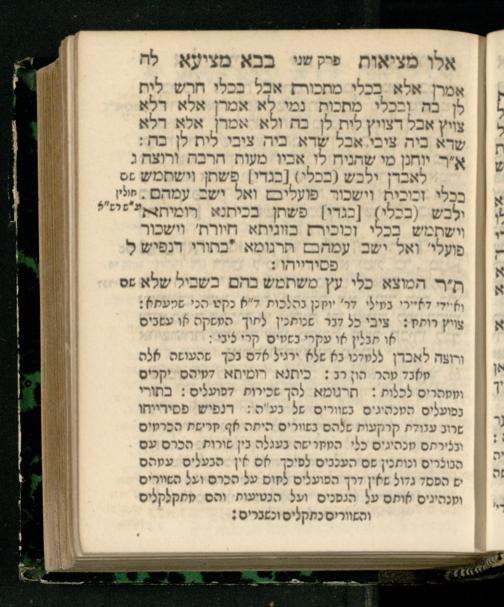 אלו מציאות פרק שני בבא מציעא לה
אמרן אלא בכלי מתכות אבל בכלי חרש לית
לן בה ובכלי מתכות נמי לא אמרן אלא דלא
צויץ אבל דצויץ לית לן בה ולא אמרן אלא דלא
שדא ביה ציבי אבל שדא ביה ציבי לית לן בה :
א״ר יוחנן מי שהניח לו אביו מעות הרבה ורוצה ג
לאבדן ילבש (בכלי) [בגדי] פשתן וישתמש שם
בכלי זכוכית וישכור פועלים ואל ישב עמהם . חולין
ילבש (בכלי) [בגדי] פשתן בכיתנא רומיתא
וישתמש בכלי זכוכית בזוגיתא חיורת׳ וישכור
פועלי׳ ואל ישב עמהם תרגומא *בתורי דנפיש ל
פסידייהו :
ת״ר המוצא כלי עץ משתמש בהם בשביל שלא שם
ואיידי דאיירי במילי דר׳ יוחנן בהלכות ד״א נקט הני שמעתא :
צויץ רותח : ציבי כל דבר שנותנין לתוך המשקה או עשבים
או תבלין או עקרי בשמים קרי ציבי :
ורוצה לאבדן ללמדנו בא שלא ירגיל אדם בכך שהעושה אלה
מאבד מהר הון רב : כיתנא רומיתא דמיהם יקרים
וממהרים לכלות : תרגומא להך שכירות דפועלים : בתורי
בפועלים המנהיגים בשוורים של בע״ה : דנפיש פסידייהו
שרוב עבודת קרקעות שלהם בשוורים היתה אף חרישת הכרמים
ובלירתם מנהיגים כלי המחרישה בעגלה בין שורות הכרם עם
הבוצרים ונותנין שם הענבים לפיכך אם אין הבעלים עמהם
יש הפסד גדול שאין דרך הפועלים לחוס על הכרם ועל השוורים
ומנהיגים אותם על הגפנים ועל הנטיעות והם מתקלקלים
והשוורים נתקלים ונשברים :